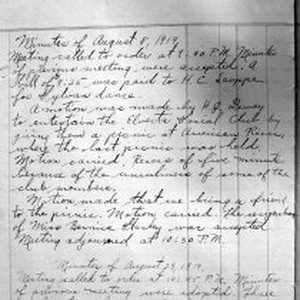 Minutes of August 8, 1919
Meeting called to order at 9:30 P.M. Minutes
of previous meeting were accepted. A
bill of 9.25 was paid to H.C.
for dance.
A motion was made by H.G.
to entertain the Social Club by
giving them a picnic at American River,
where the last picnic was held.
Motion carried. Recess of five minute
because of the unruliness of some of the
club members.
Motion made that we bring a friend
to the picnic. Motion carried. The resignation
of Miss Bernice was accepted
Meeting adjourned at 10:30 P.M.
Minutes of August 29, 1919.
Meeting called to order at 10:45 P.M. Minutes
of previous meeting were adopted. Three